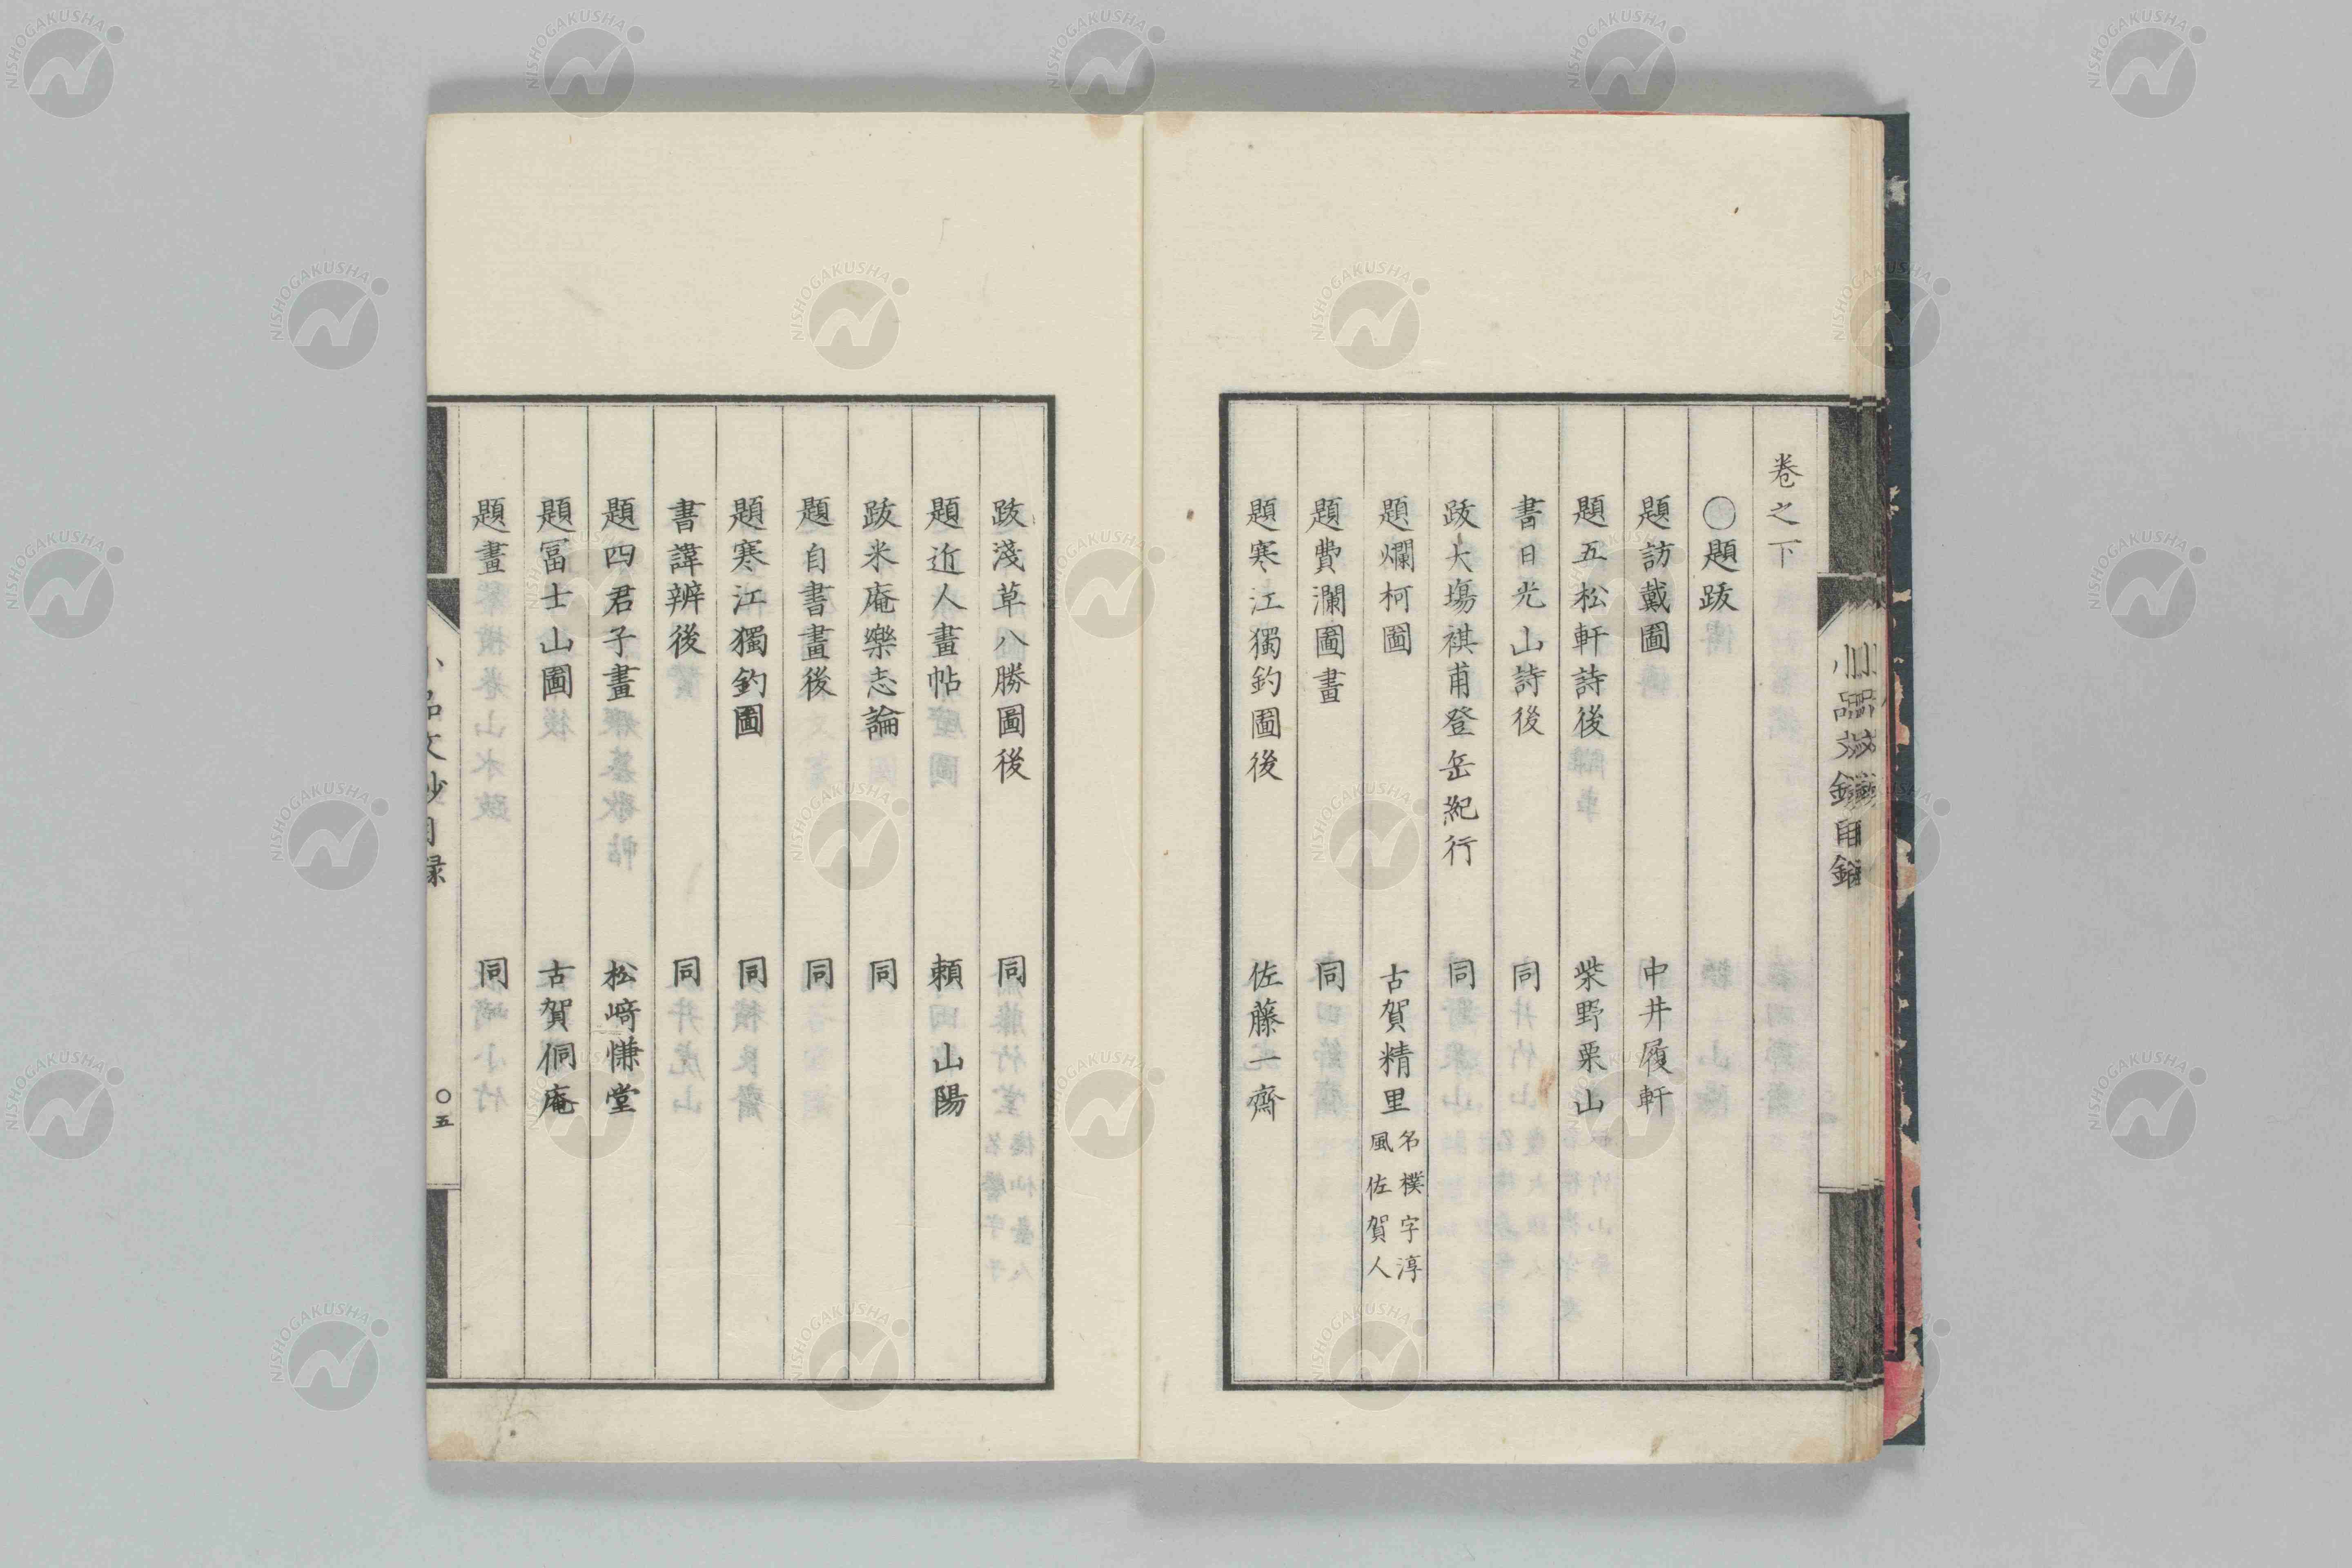 卷之下
〇題跋
題訪戴圖 中井履軒
題五松軒詩後 柴野栗山
書日光山詩後 同
跋大塲祺甫登岳紀行 同
題爛柯圖 古賀精里 名樸字淳
風佐賀人
題費瀾圖畫 同
題寒江獨釣圖後 佐藤一齋
跋淺草八勝圖後 同
題近人畫帖 賴山陽
跋米庵樂志論 同
題自書畫後 同
題寒江獨釣圖 同
書諱辨後 同
題四君子畫 松﨑慊堂
題冨士山圖 古賀侗庵
題畫 同
〇五
NISHOGAKUSHA